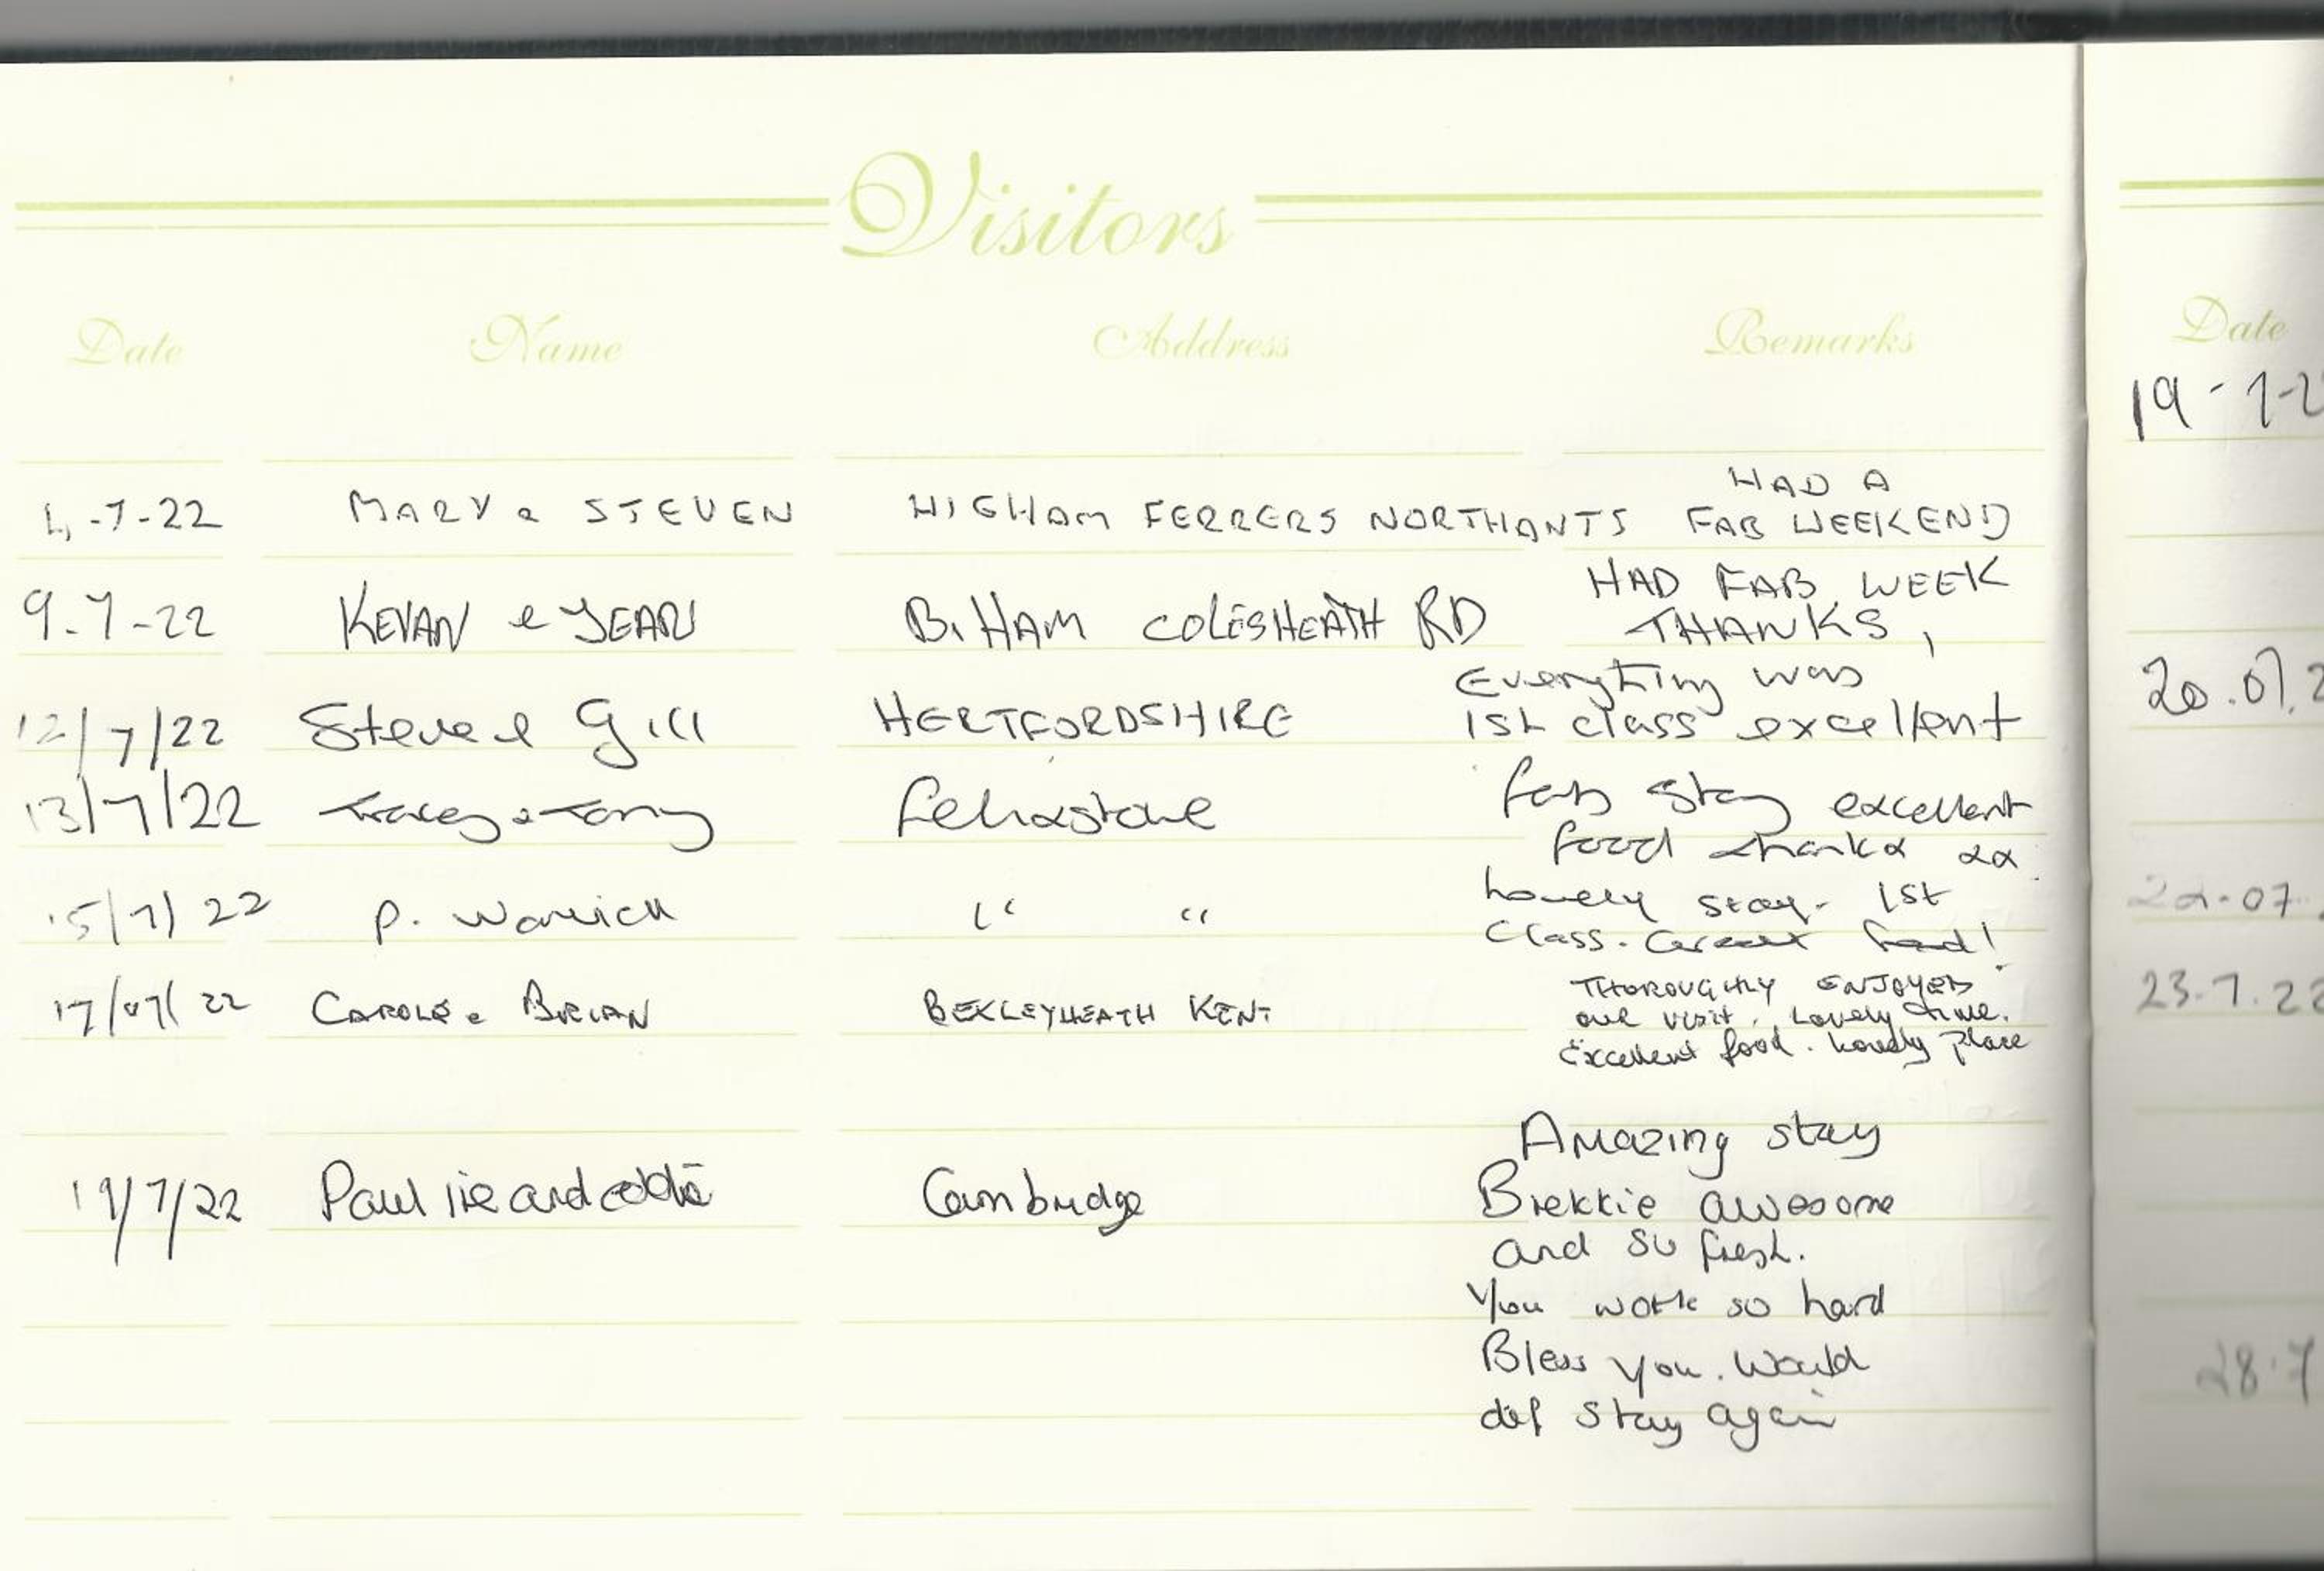 Visitors
Date Name Address Remarks
HAD A
4-7-22 MARY & STEVEN HIGHAM FERRERS NORTHANTS FAB WEEKEND
HAD FAB WEEK
9-7-22 KEVAN & JEAN B.HAM COLESHEATH RD THANKS,
Everything was
12/7/22 Steve & Gill HERTFORDSHIRE 1st class excellent
13/7/22 Tracey & Tony Felixstowe fab stay excellent
food thanks xx
Lovely stay. 1st
15/7/22 P. Warwick " " Class. Great food!
THOROUGHLY ENJOYED
17/07/22 CAROLE & BRIAN BEXLEYHEATH KENT our visit. Lovely time.
Excellent food. Lovely place
Amazing stay
19/7/22 Paul and Cambridge Brekkie awesome
and so fresh.
You work so hard
Bless you. Would
def stay again
Date
19-7-2
20.07.2
22-07
23.7.22
28.7